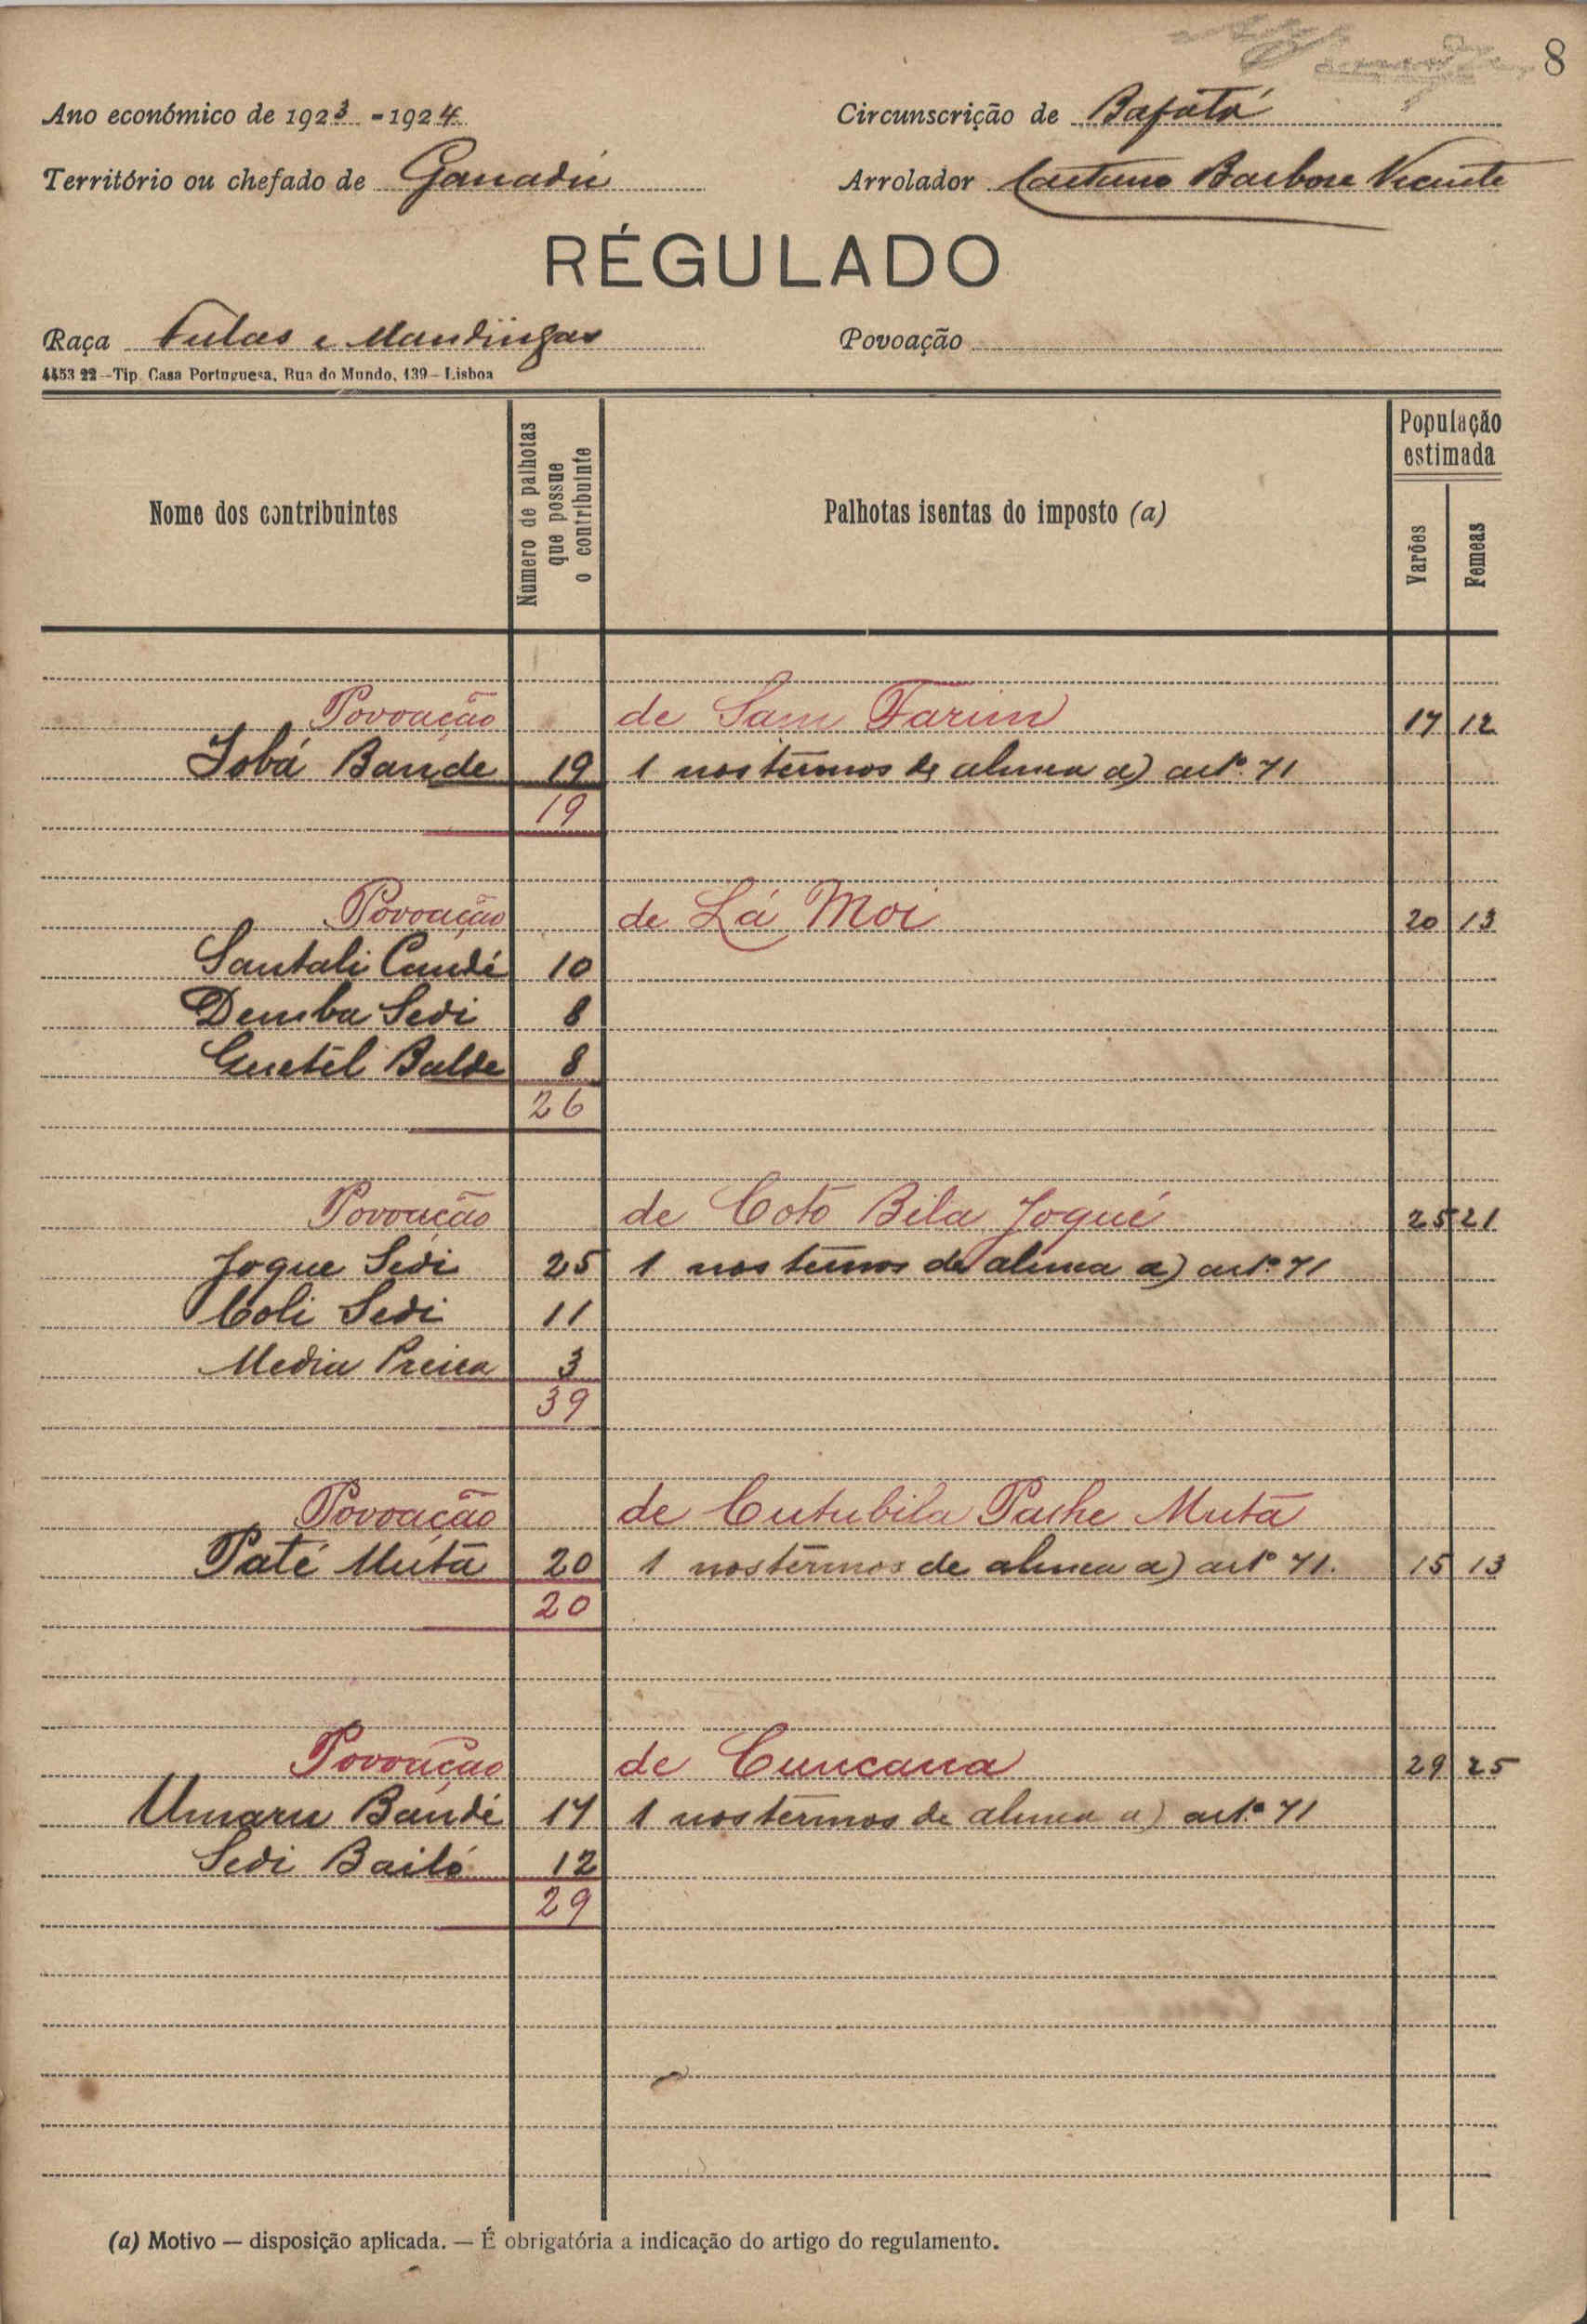 8
Ano económico de 1923-1924 Circunscrição de Bafatá
Território ou chefado de Ganadú Arrolador Caetano Barbosa Vicente
RÉGULADO
Raça Fulas e Mandingas Povoação
4453 22 - Tip. Casa Portuguesa, Rua do Mundo, 139 - Lisboa
Nome dos contribuintes Número de palhotas que possue o contribuinte Palhotas isentas do imposto (a) População estimada Varões Femeas
Povoação de Sam Farim 17 12
Jobá Bande 19 1 nos termos de alinea a) artº. 71
19
Povoação de Lá Moi 20 13
Santali Candé 10
Demba Sedi 8
Guetél Balde 8
26
Povoação de Coto Bila Joqué 25 21
Joque Sedi 25 1 nos termos de alinea a) artº. 71
Coli Sedi 11
Media 3
39
Povoação de Cutubila Pathe Mutá
Paté Mutá 20 1 nos termos de alinea a) artº 71. 15 13
20
Povoação de Cuncana 29 25
Umaru Bandé 17 1 nos termos de alinea a) artº. 71
Sedi Bailó 12
29
(a) Motivo — disposição aplicada. — É obrigatória a indicação do artigo do regulamento.